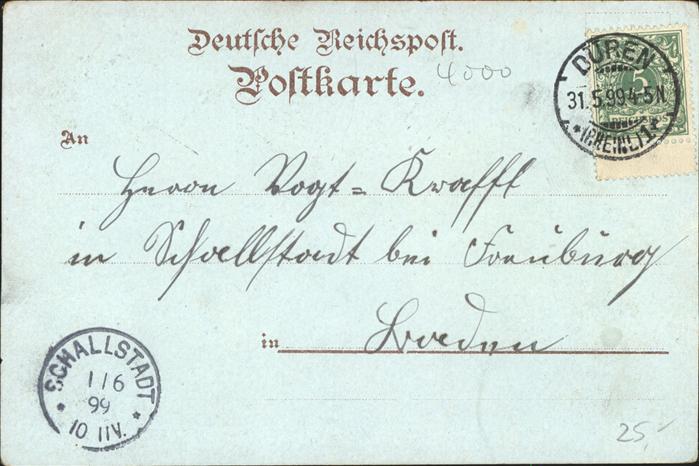 Deutsche Reichspost.
Postkarte.
4000
DÜREN
31.5.99 4-5N
* (RHEINL) 1 *
5
An
Herrn Vogt=Krafft
in Schallstadt bei Freiburg
in Baden
SCHALLSTADT
1 1 6
99
10 11V.
25,-